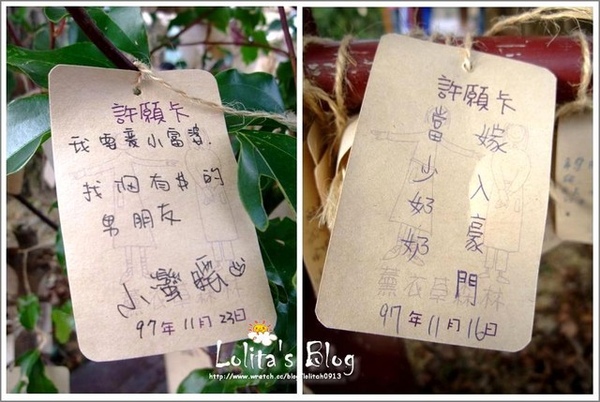 許願卡
我要變小富婆.
找個有$的
男朋友
小蠻
97年11月23日
許願卡
嫁入豪門
當少奶奶
薰衣草森林
97年11月16日
Lolita's Blog
http://www.wretch.cc/blog/lolitah0913